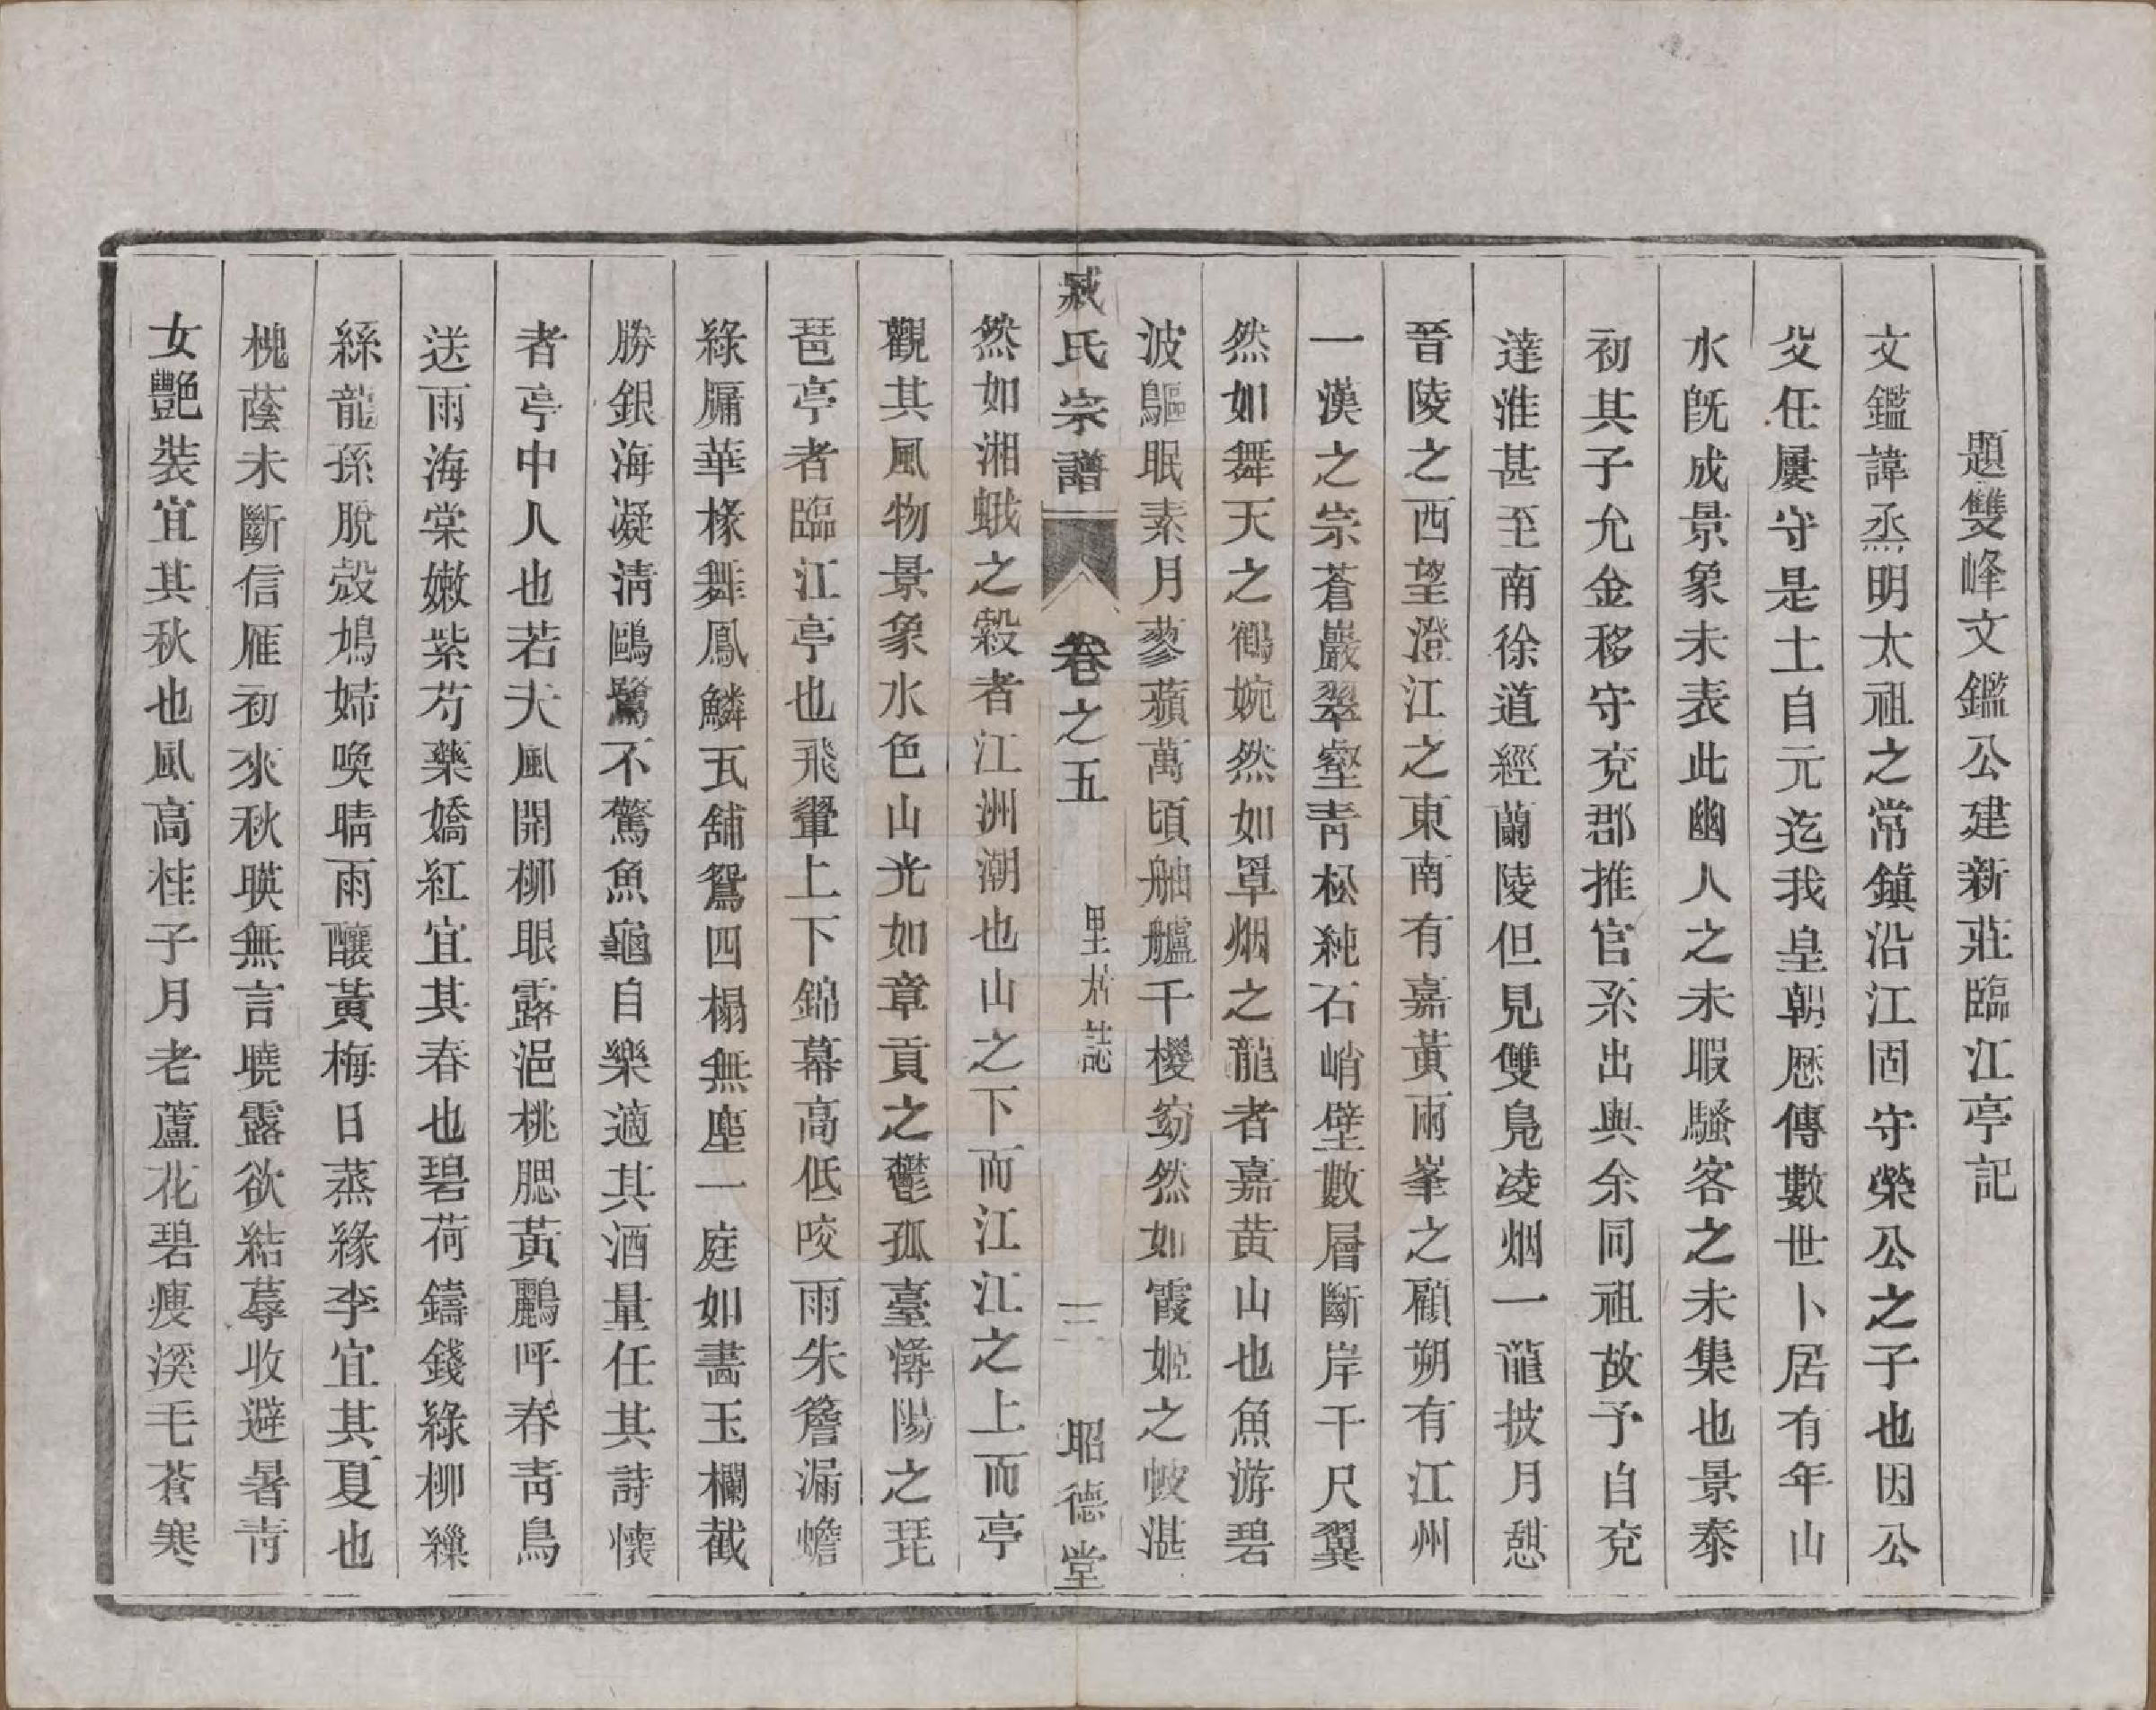 題雙峰文鑑公建新莊臨江亭記
文鑑諱烝明太祖之常鎮沿江固守榮公之子也因公
父任屢守是土自元迄我皇朝歷傳數世卜居有年山
水旣成景象未表此幽人之未暇騷客之未集也景泰
初其子允金移守兖郡推官系出與余同祖故予自兖
達淮甚至南徐道經蘭陵但見雙鳬凌烟一龍披月憇
晉陵之西望澄江之東南有嘉黃兩峯之顧朔有江州
一漢之宗蒼巖翠壑靑松純石峭壁數層斷岸千尺翼
然如舞天之鶴婉然如罩烟之龍者嘉黃山也魚游碧
波鷗眠素月蓼蘋萬頃舳艫千櫻䇳然如霞姬之帔湛
臧氏宗譜 卷之五 里居誌 三 昭德堂
然如湘蛾之縠者江洲潮也山之下而江江之上而亭
觀其風物景象水色山光如章貢之鬱孤臺潯陽之琵
琶亭者臨江亭也飛翬上下錦幕高低咬雨朱簷漏蟾
綠牖華椽舞鳳鱗瓦舖鴛四榻無塵一庭如畵玉欄截
勝銀海凝淸鷗鷺不驚魚龜自樂適其酒量任其詩懷
者亭中人也若夫風開柳眼露浥桃腮黃鸝呼春靑鳥
送雨海棠嫩紫芍藥嬌紅宜其春也碧荷鑄錢綠柳繅
絲龍孫脫殼鳩婦喚晴雨釀黃梅日蒸緣李宜其夏也
槐蔭未斷信雁初來秋暎無言曉露欲結蓐收避暑靑
女艷裝宜其秋也風高桂子月老蘆花碧瘦溪毛蒼寒